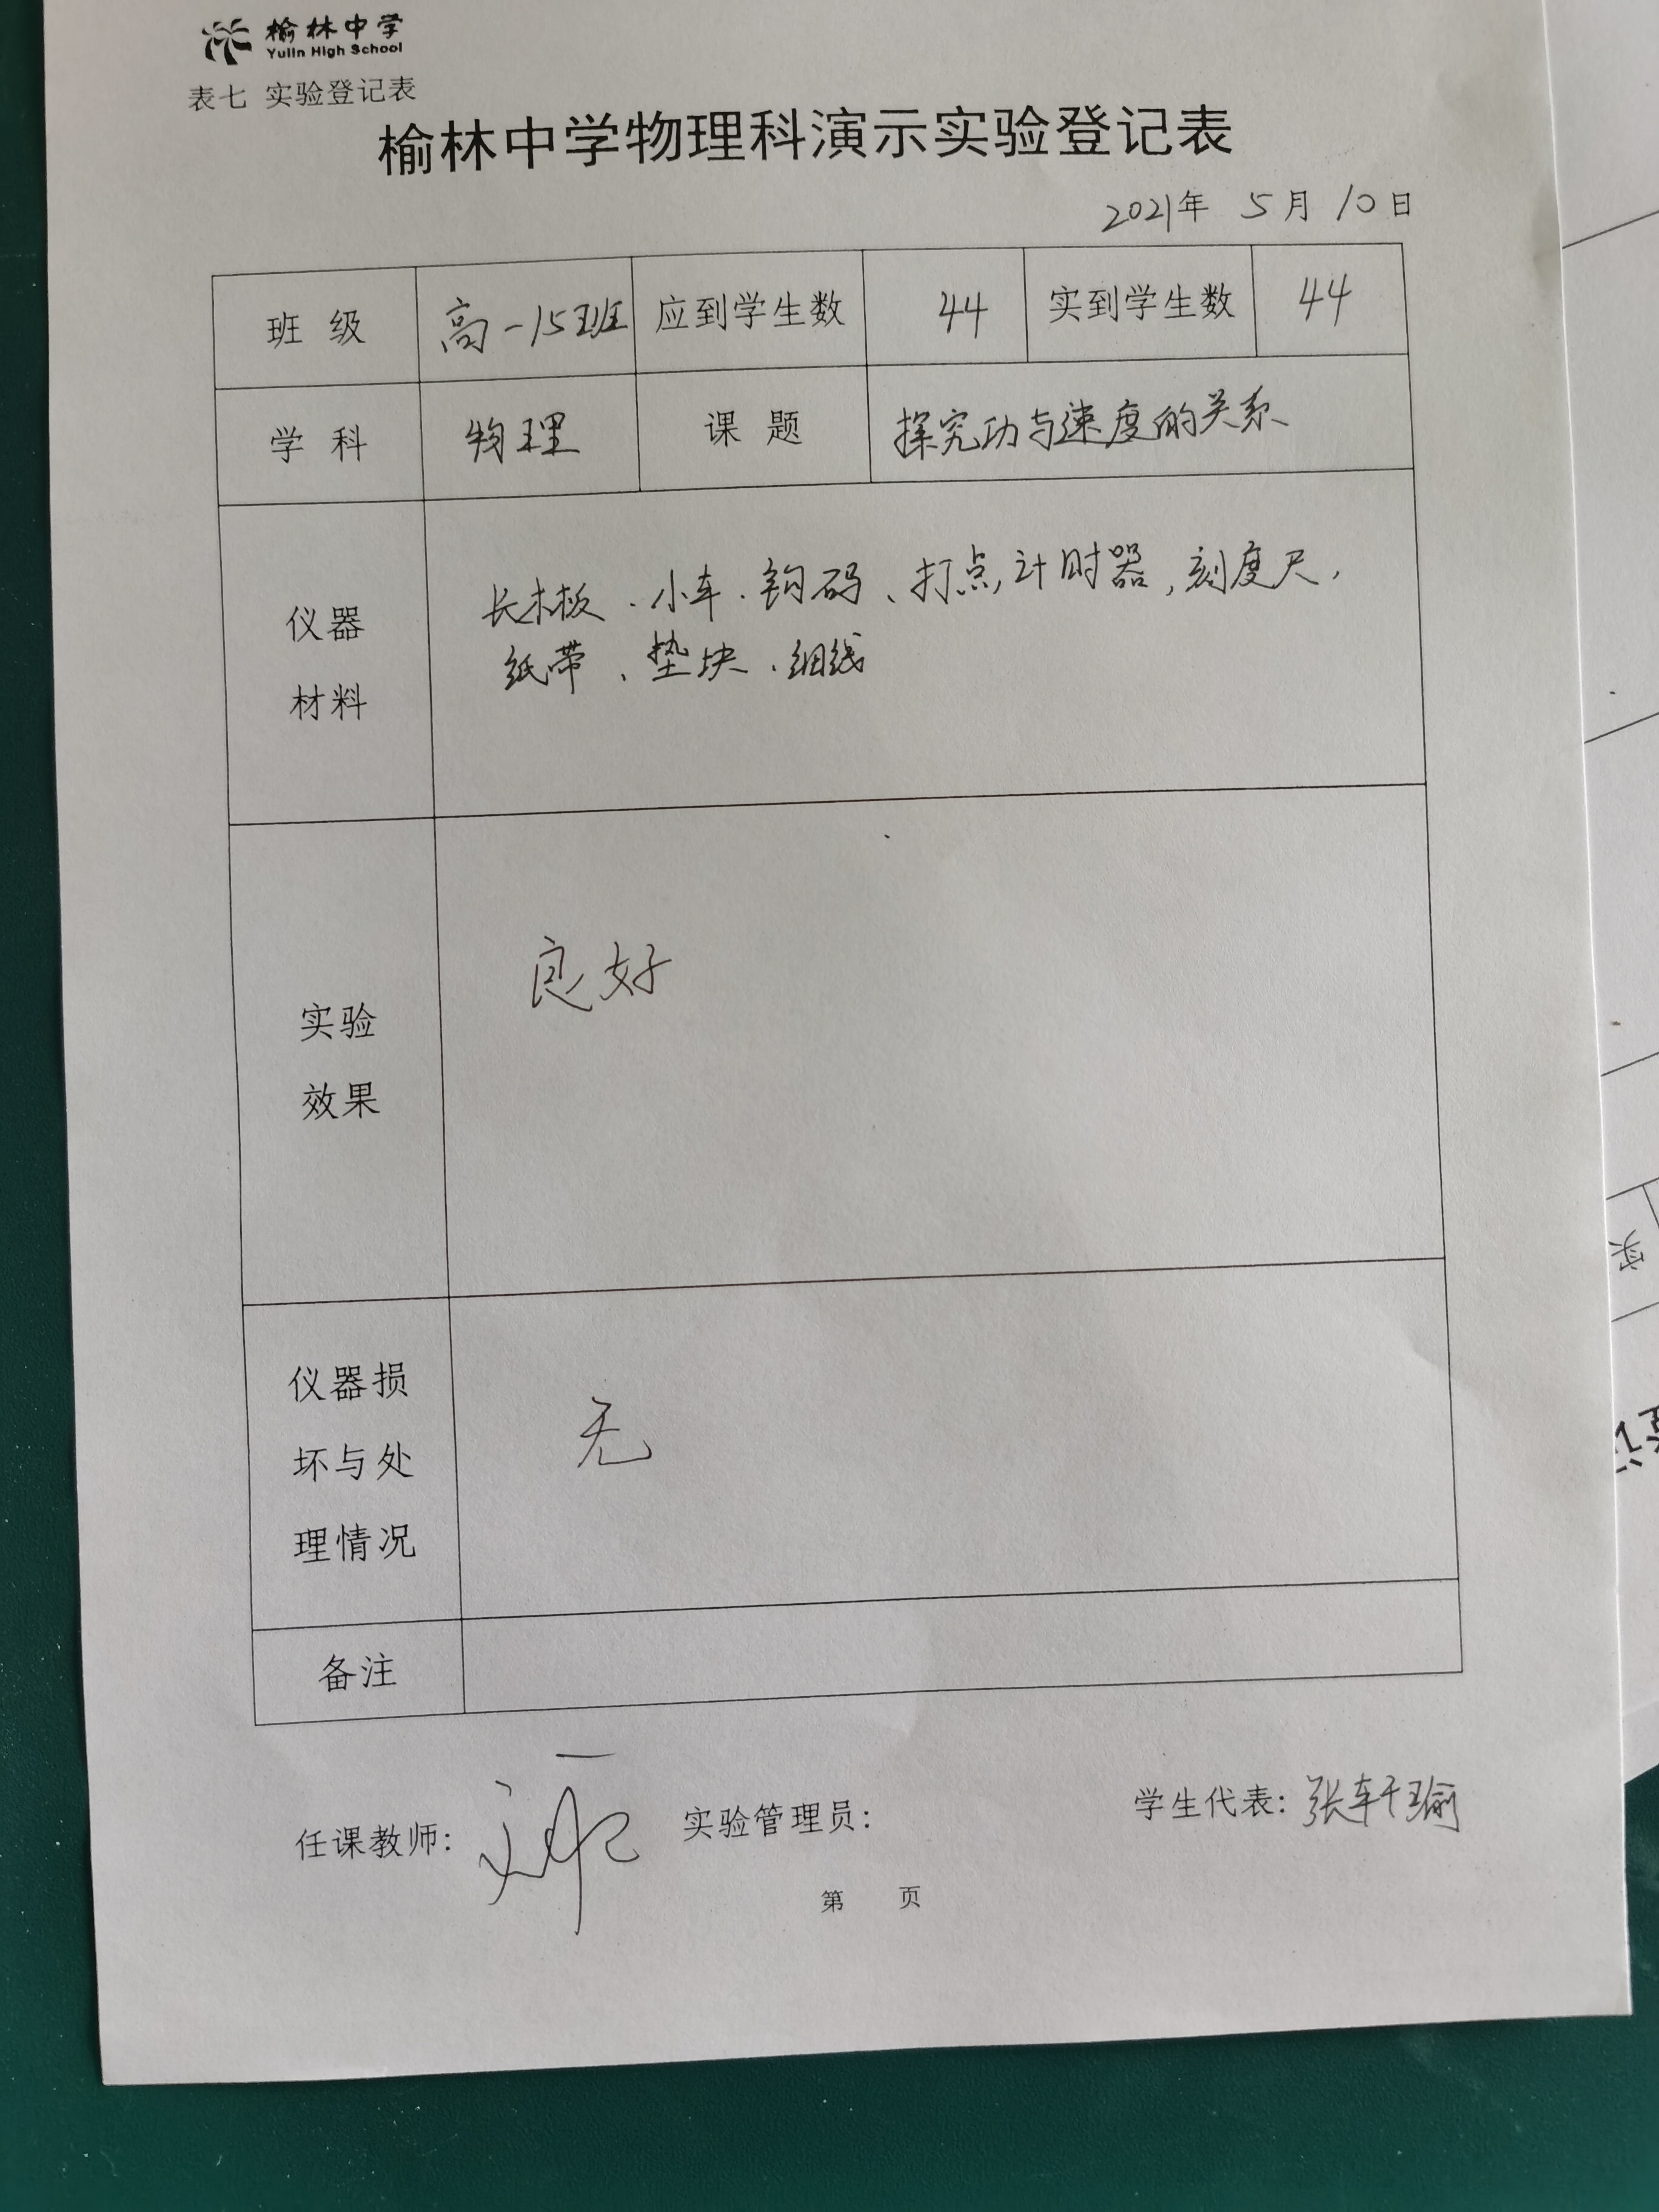 榆林中学
Yulin High School
表七 实验登记表
榆林中学物理科演示实验登记表
2021年 5月 10日
班 级 高一15班 应到学生数 44 实到学生数 44
学 科 物理 课 题 探究功与速度的关系
长木板、小车、钩码、打点计时器,刻度尺,
纸带、垫块、细线
仪器
材料
良好
实验
效果
无
仪器损
坏与处
理情况
备注
任课教师: 实验管理员: 学生代表: 张轩瑜
第 页
实